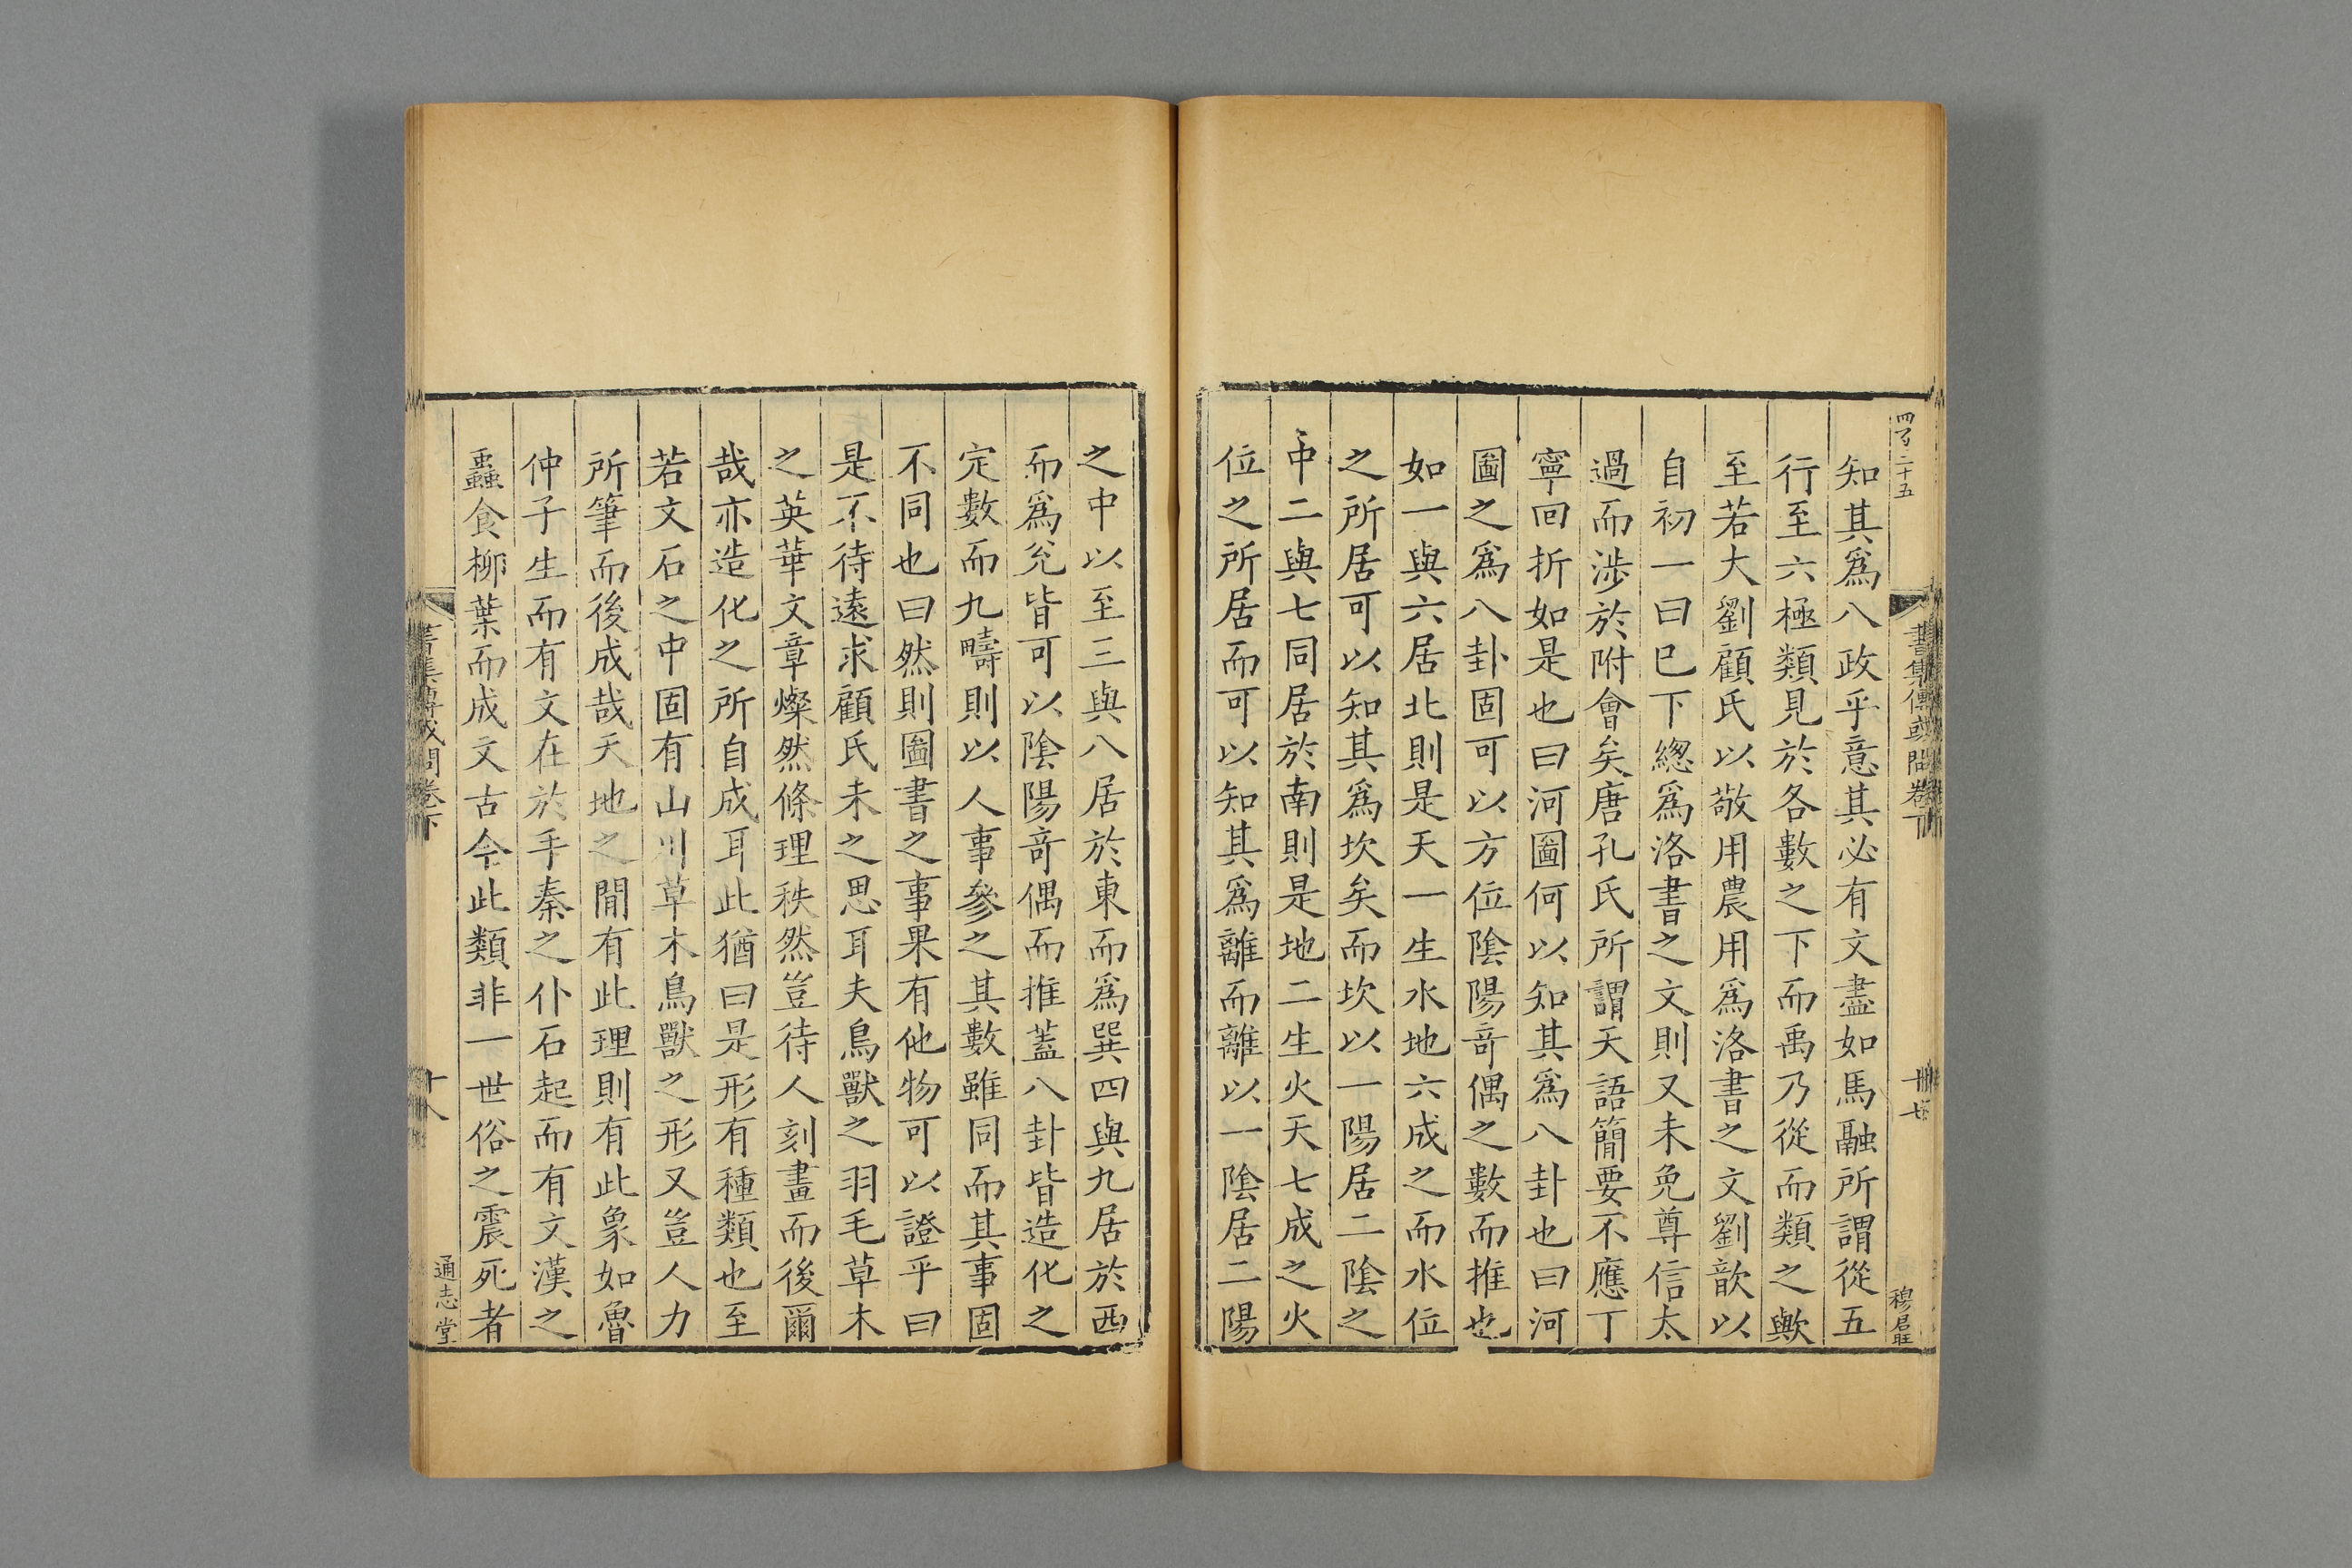 四百二十五
書集傳或問卷下
穆君旺
知其爲八政乎意其必有文盡如馬融所謂從五
行至六極類見於各數之下而禹乃從而類之歟
至若大劉顧氏以敬用農用爲洛書之文劉歆以
自初一曰巳下緫爲洛書之文則又未免尊信太
過而涉於附會矣唐孔氏所謂天語簡要不應丁
寧回折如是也曰河圖何以知其爲八卦也曰河
圖之爲八卦固可以方位陰陽竒偶之數而推也
如一與六居北則是天一生水地六成之而水位
之所居可以知其爲坎矣而坎以一陽居二陰之
中二與七同居於南則是地二生火天七成之火
位之所居而可以知其爲離而離以一陰居二陽
之中以至三與八居於東而爲巽四與九居於西
而爲兊皆可以陰陽竒偶而推蓋八卦皆造化之
定數而九疇則以人事參之其數雖同而其事固
不同也曰然則圖書之事果有他物可以證乎曰
是不待遠求顧氏未之思耳夫鳥獸之羽毛草木
之英華文章燦然條理秩然豈待人刻畫而後爾
哉亦造化之所自成耳此猶曰是形有種類也至
若文石之中固有山川草木鳥獸之形又豈人力
所筆而後成哉天地之閒有此理則有此象如魯
仲子生而有文在於手秦之仆石起而有文漢之
蟲食柳葉而成文古今此類非一世俗之震死者
書集傳或問卷下
十八
通志堂